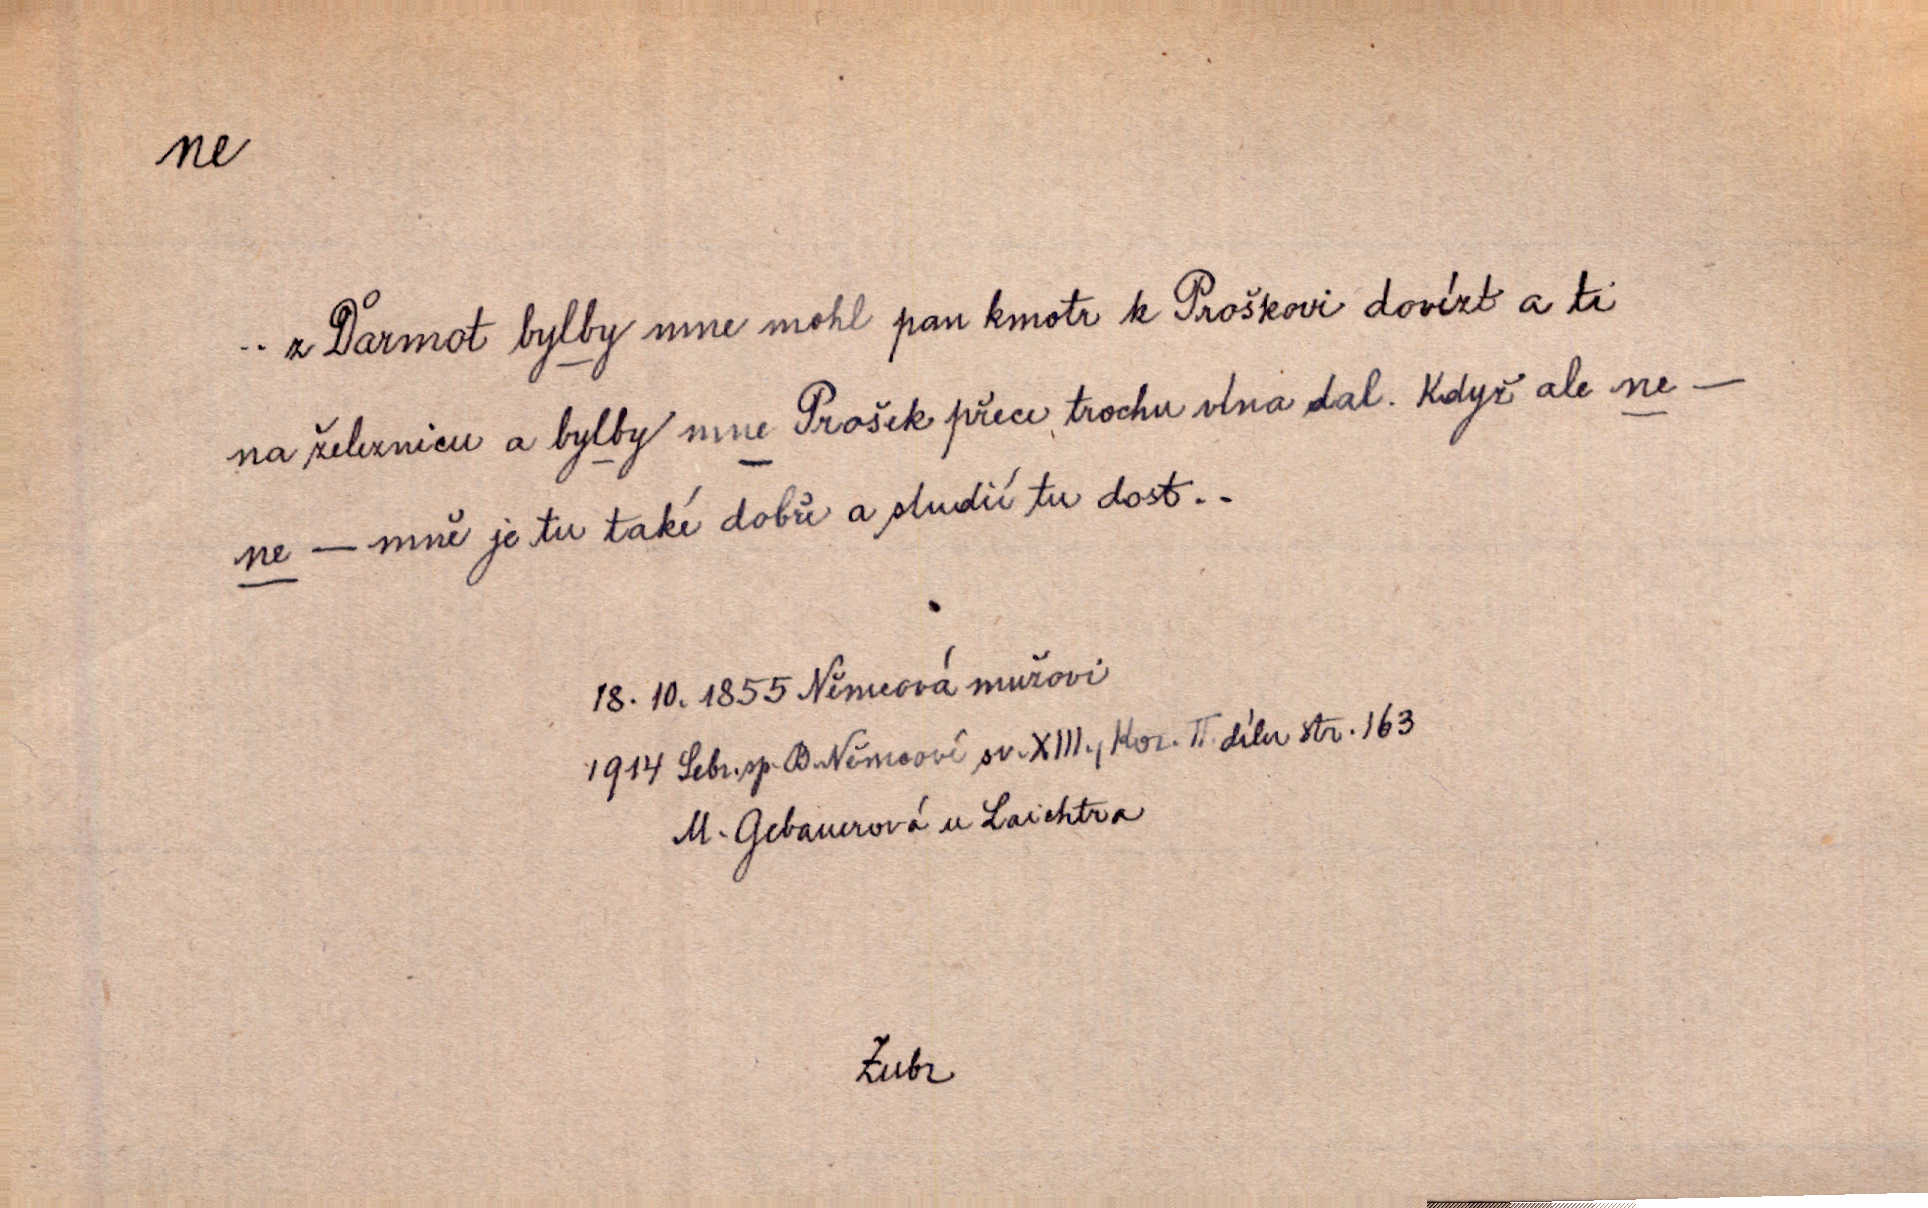 ne
.. z Ďarmot bylby mne mohl pan kmotr k Proškovi dovízt a ti
na železnicu a bylby mne Prošek přece trochu vína dal. Když ale ne —
ne — mně je tu také dobře a studií tu dost..
18. 10. 1855 Němcová mužovi
1914 Sebr. sp. B. Němcové sv. XIII., Kor. II. dílu str. 163
M. Gebauerová u Laichtra
Zubr